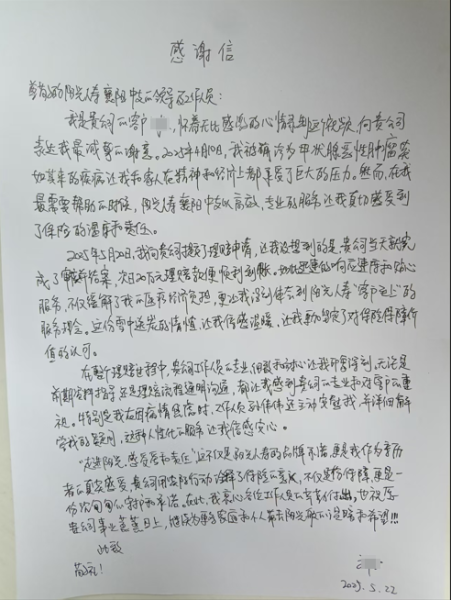 感谢信
尊敬的阳光人寿襄阳中支的领导及工作人员：
我是贵公司的客户，怀着无比感激的心情写到这个视频，向贵公司
表达我最诚挚的谢意。2025年4月10日，我被确诊为甲状腺恶性肿瘤，突
如其来的疾病让我和家人在精神和经济上都承受了巨大的压力。然而，在我
最需要帮助的时候，阳光人寿襄阳中支以高效、专业的服务让我真切感受到
了保险的温度和责任。
2025年5月20日，我向贵公司提交了理赔申请，让我没想到的是，贵公司当天就完
成了审核结案，次日20万元理赔款便顺利到账。如此迅速的响应速度和贴心
服务，不仅缓解了我的医疗经济负担，更让我深刻体会到阳光人寿“客户至上”的
服务理念。这份雪中送炭的情怀，让我倍感温暖，让我更加坚定了对保险保障价
值的认可。
在整个理赔过程中，贵公司工作人员的专业、细致和耐心让我印象深刻，无论是
前期资料指导还是理赔流程透明沟通，都让我感到贵公司的专业和对客户的重
视。特别是我在因病情焦虑时，工作人员主动安慰我，并详细解
答我的疑问，这种人性化的服务让我倍感安心。
阳光，感受爱和责任”这不仅是阳光人寿的品牌承诺，更是我作为亲历
者的真实感受，贵公司用实际行动诠释了保险的意义，不仅是份保障，更是一
份的守护和承诺。在此，我衷心感谢工作人员的辛苦付出，也祝愿
贵公司事业蒸蒸日上，继续为更多家庭和个人带来阳光般的温暖和希望!!!
此致
敬礼！
2025.5.22